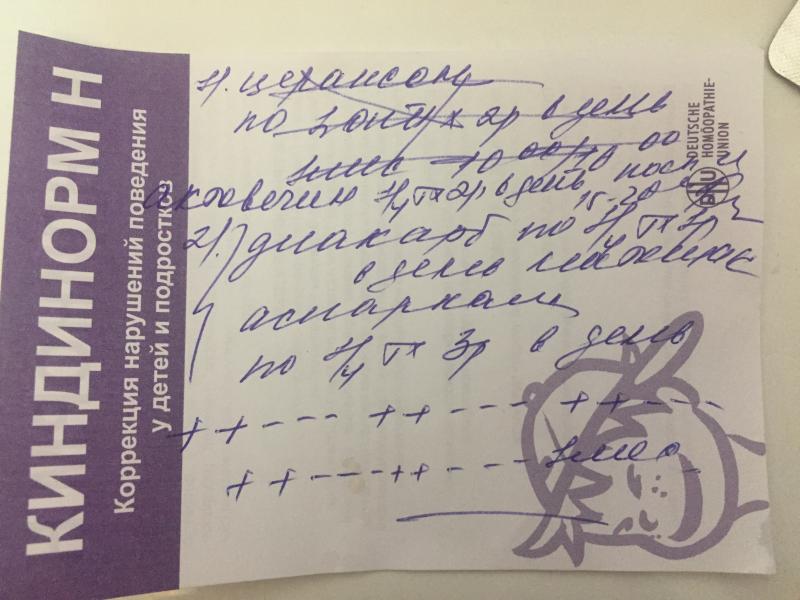 КИНДИНОРМ Н
Коррекция нарушений поведения
у детей и подростков
DEUTSCHE
HOMÖOPATHIE-
UNION
DHU
1. церaксон
по 1 х 2р в день
1 мес 10 00
актовегин 1/4 т х 2р в день
15-20
2. диакарб по 1/4 т х 1р
в день
аспаркам
по 1/4 т х 3р в день
++ --- ++ --- ++ ---
++ --- ++ --- 1 мес